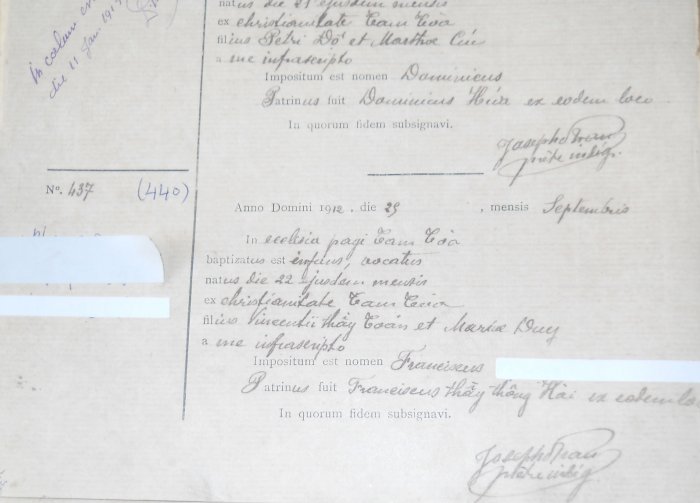 in coelum
die 11 Jan. 191
natus die 21 ejusdem mensis
ex christianitate Tam Toa
filius Petri Dó et Marthae Cúc
a me infrascripto
Impositum est nomen Dominicus
Patrinus fuit Dominicus Hứa ex eodem loco
In quorum fidem subsignavi.
Josepho Tran
Nº. 437 (440)
Anno Domini 1912, die 25, mensis Septembris
In ecclesia pagi Tam Tòa
baptizatus est infans, vocatus
natus die 22 ejusdem mensis
ex christianitate Tam Toia
filius Vincentii thầy Toán et Mariæ Duy
a me infrascripto
Impositum est nomen Franciscus
Patrinus fuit Franciscus thầy thông Hài ex eodem lo
In quorum fidem subsignavi.
Josepho Tran